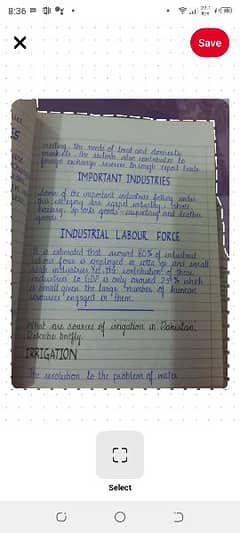 8:36
Save
meeting the needs of local and domestic
markets. The sector also contributes to
foreign exchange reserves through export trade
IMPORTANT INDUSTRIES
Some of the important industries falling under
this category are carpet industry, shoes,
hosiery, sports goods and leather
goods
INDUSTRIAL LABOUR FORCE
It is estimated that around 80% of industrial
labour force is employed in cottage and small
scale industries. Yet, the contribution of these
industries to GDP is only around 25% which
is small given the large number of human
resources engaged in them.
What are sources of irrigation in Pakistan.
Describe briefly.
IRRIGATION
The resolution to the problem of water
Select